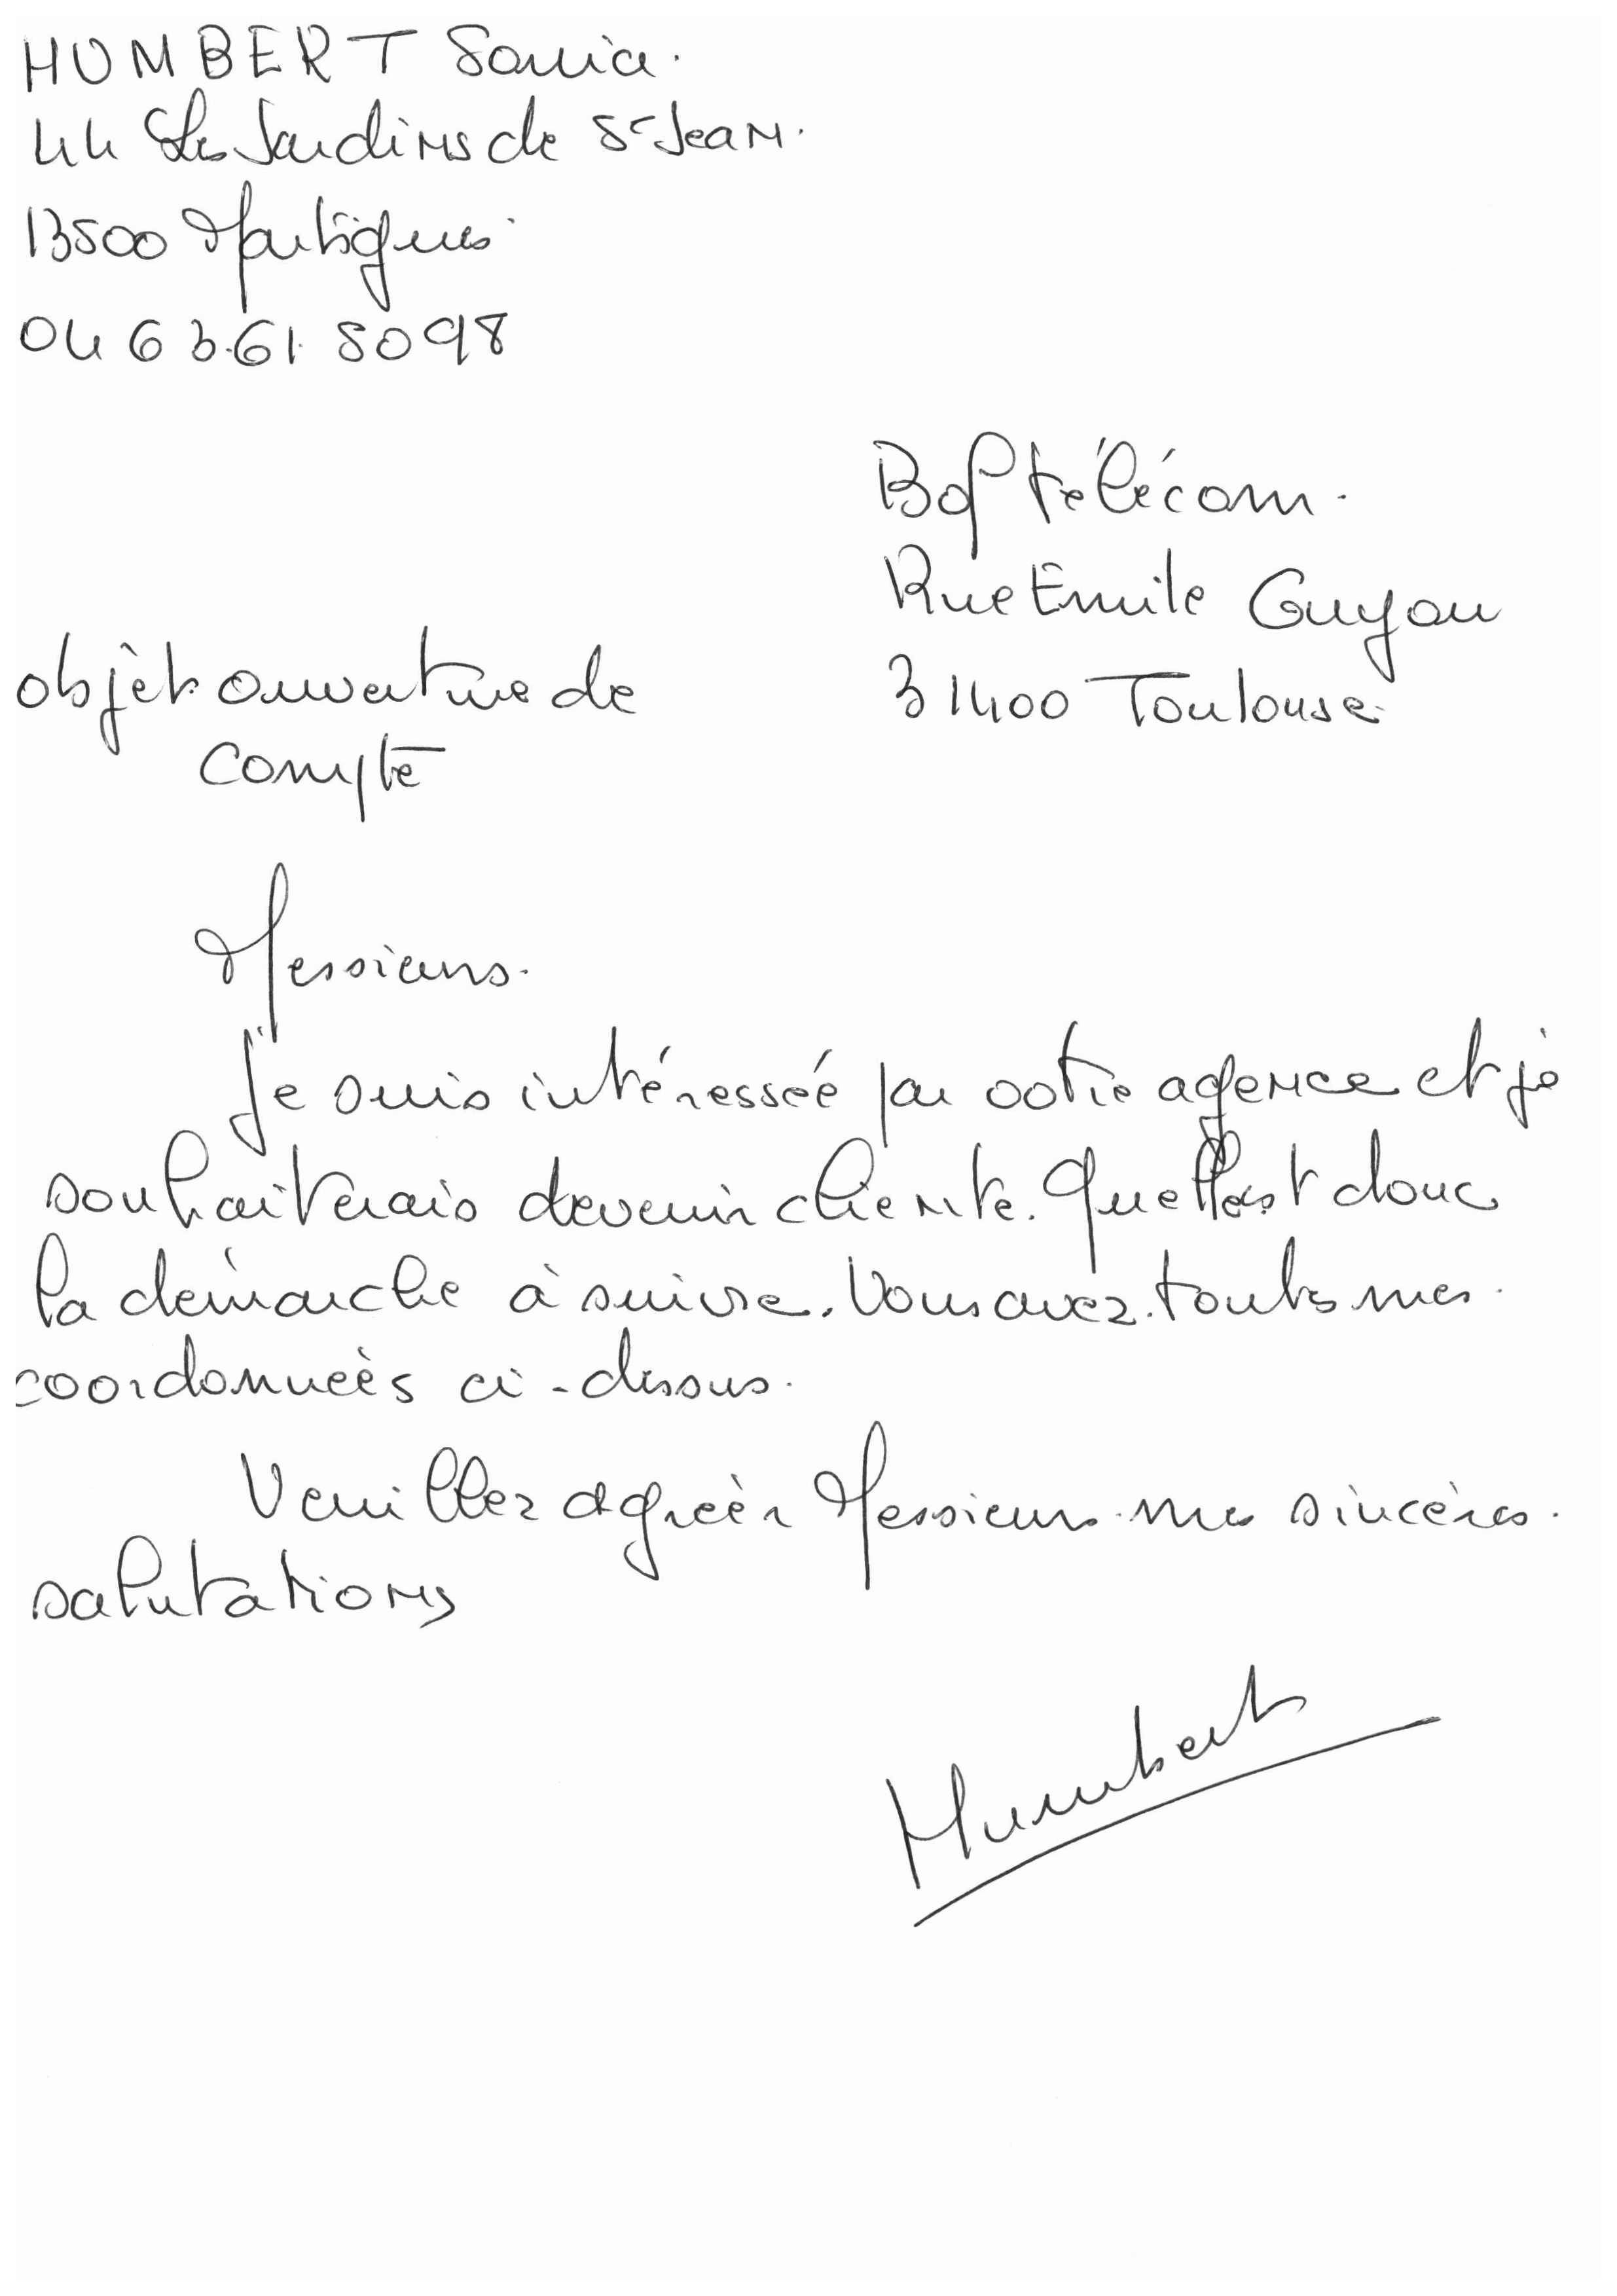 HUMBERT Sonia.
44 Les Jardins de St Jean.
13500 Martigues
04 63.61.80 98
Bop télécom.
Rue Emile Guyou
objèt ouverture de
31400 Toulouse
compte
Messieurs.
Je suis intéressée par votre agence et je
souhaiterais devenir cliente. Quelle est donc
la démarche à suivre. Vous avez toutes mes
coordonneés ci-dessus.
Veuillez agréer Messieurs mes sincères
salutations
Humbert